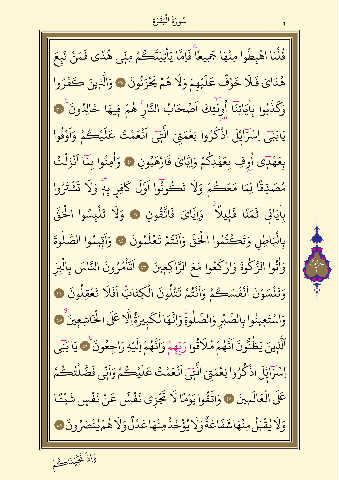 سُورَةُ الْبَقَرَةِ
قُلْنَا اهْبِطُوا مِنْهَا جَمِيعًا فَإِمَّا يَأْتِيَنَّكُمْ مِنِّي هُدًى فَمَنْ تَبِعَ
هُدَايَ فَلَا خَوْفٌ عَلَيْهِمْ وَلَا هُمْ يَحْزَنُونَ وَالَّذِينَ كَفَرُوا
وَكَذَّبُوا بِآيَاتِنَا أُولَئِكَ أَصْحَابُ النَّارِ هُمْ فِيهَا خَالِدُونَ
يَا بَنِي إِسْرَائِيلَ اذْكُرُوا نِعْمَتِيَ الَّتِي أَنْعَمْتُ عَلَيْكُمْ وَأَوْفُوا
بِعَهْدِي أُوفِ بِعَهْدِكُمْ وَإِيَّايَ فَارْهَبُونِ وَآمِنُوا بِمَا أَنْزَلْتُ
مُصَدِّقًا لِمَا مَعَكُمْ وَلَا تَكُونُوا أَوَّلَ كَافِرٍ بِهِ وَلَا تَشْتَرُوا
بِآيَاتِي ثَمَنًا قَلِيلًا وَإِيَّايَ فَاتَّقُونِ وَلَا تَلْبِسُوا الْحَقَّ
بِالْبَاطِلِ وَتَكْتُمُوا الْحَقَّ وَأَنْتُمْ تَعْلَمُونَ وَأَقِيمُوا الصَّلٰوةَ
وَآتُوا الزَّكٰوةَ وَارْكَعُوا مَعَ الرَّاكِعِينَ أَتَأْمُرُونَ النَّاسَ بِالْبِرِّ
وَتَنْسَوْنَ أَنْفُسَكُمْ وَأَنْتُمْ تَتْلُونَ الْكِتَابَ أَفَلَا تَعْقِلُونَ
وَاسْتَعِينُوا بِالصَّبْرِ وَالصَّلٰوةِ وَإِنَّهَا لَكَبِيرَةٌ إِلَّا عَلَى الْخَاشِعِينَ
الَّذِينَ يَظُنُّونَ أَنَّهُمْ مُلَاقُوا رَبِّهِمْ وَأَنَّهُمْ إِلَيْهِ رَاجِعُونَ يَا بَنِي
إِسْرَائِيلَ اذْكُرُوا نِعْمَتِيَ الَّتِي أَنْعَمْتُ عَلَيْكُمْ وَأَنِّي فَضَّلْتُكُمْ
عَلَى الْعَالَمِينَ وَاتَّقُوا يَوْمًا لَا تَجْزِي نَفْسٌ عَنْ نَفْسٍ شَيْئًا
وَلَا يُقْبَلُ مِنْهَا شَفَاعَةٌ وَلَا يُؤْخَذُ مِنْهَا عَدْلٌ وَلَا هُمْ يُنْصَرُونَ
وَإِذْ نَجَّيْنَاكُمْ